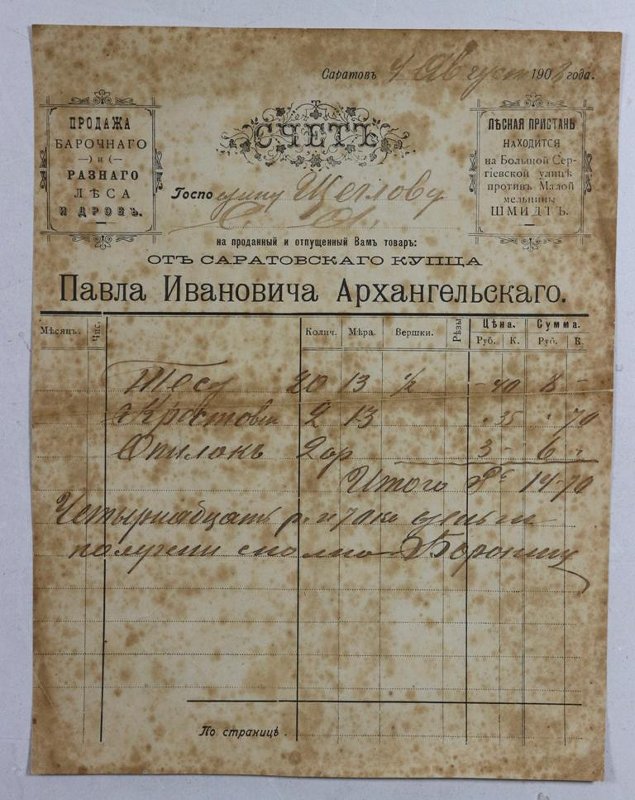 Саратовъ 4 Август 1903 года.
ПРОДАЖА
БАРОЧНАГО
—) и (—
РАЗНАГО
ЛѢСА
И ДРОВЪ.
СЧЕТЪ
ЛѢСНАЯ ПРИСТАНЬ
НАХОДИТСЯ
на Большой Сер-
гіевской улицѣ
противъ Малой
мельницы
ШМИДТЪ.
Господину Щеглову
на проданный и отпущенный Вамъ товаръ:
ОТЪ САРАТОВСКАГО КУПЦА
Павла Ивановича Архангельскаго.
Мѣсяцъ. Чис. Колич. Мѣра. Вершки. Рѣзы Цѣна. Сумма.
Руб. К. Руб. К.
Тесу 20 13 ½ – 40 8 –
2 13 " 35 " 70
Опилокъ 2 ар 3 – 6 –
Итого Рс 14 70
Четырнадцать р. и 70 ко деньги
получени сполна
По страницѣ